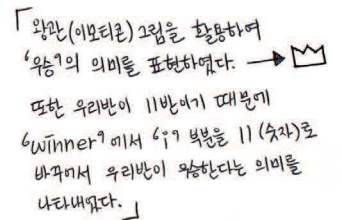 「왕관(이모티콘) 그림을 활용하여
'우승'의 의미를 표현하였다. →
또한 우리반이 11반이기 때문에
'winner'에서 'i' 부분을 11 (숫자)로
바꾸어서 우리반이 우승한다는 의미를
나타내었다.」